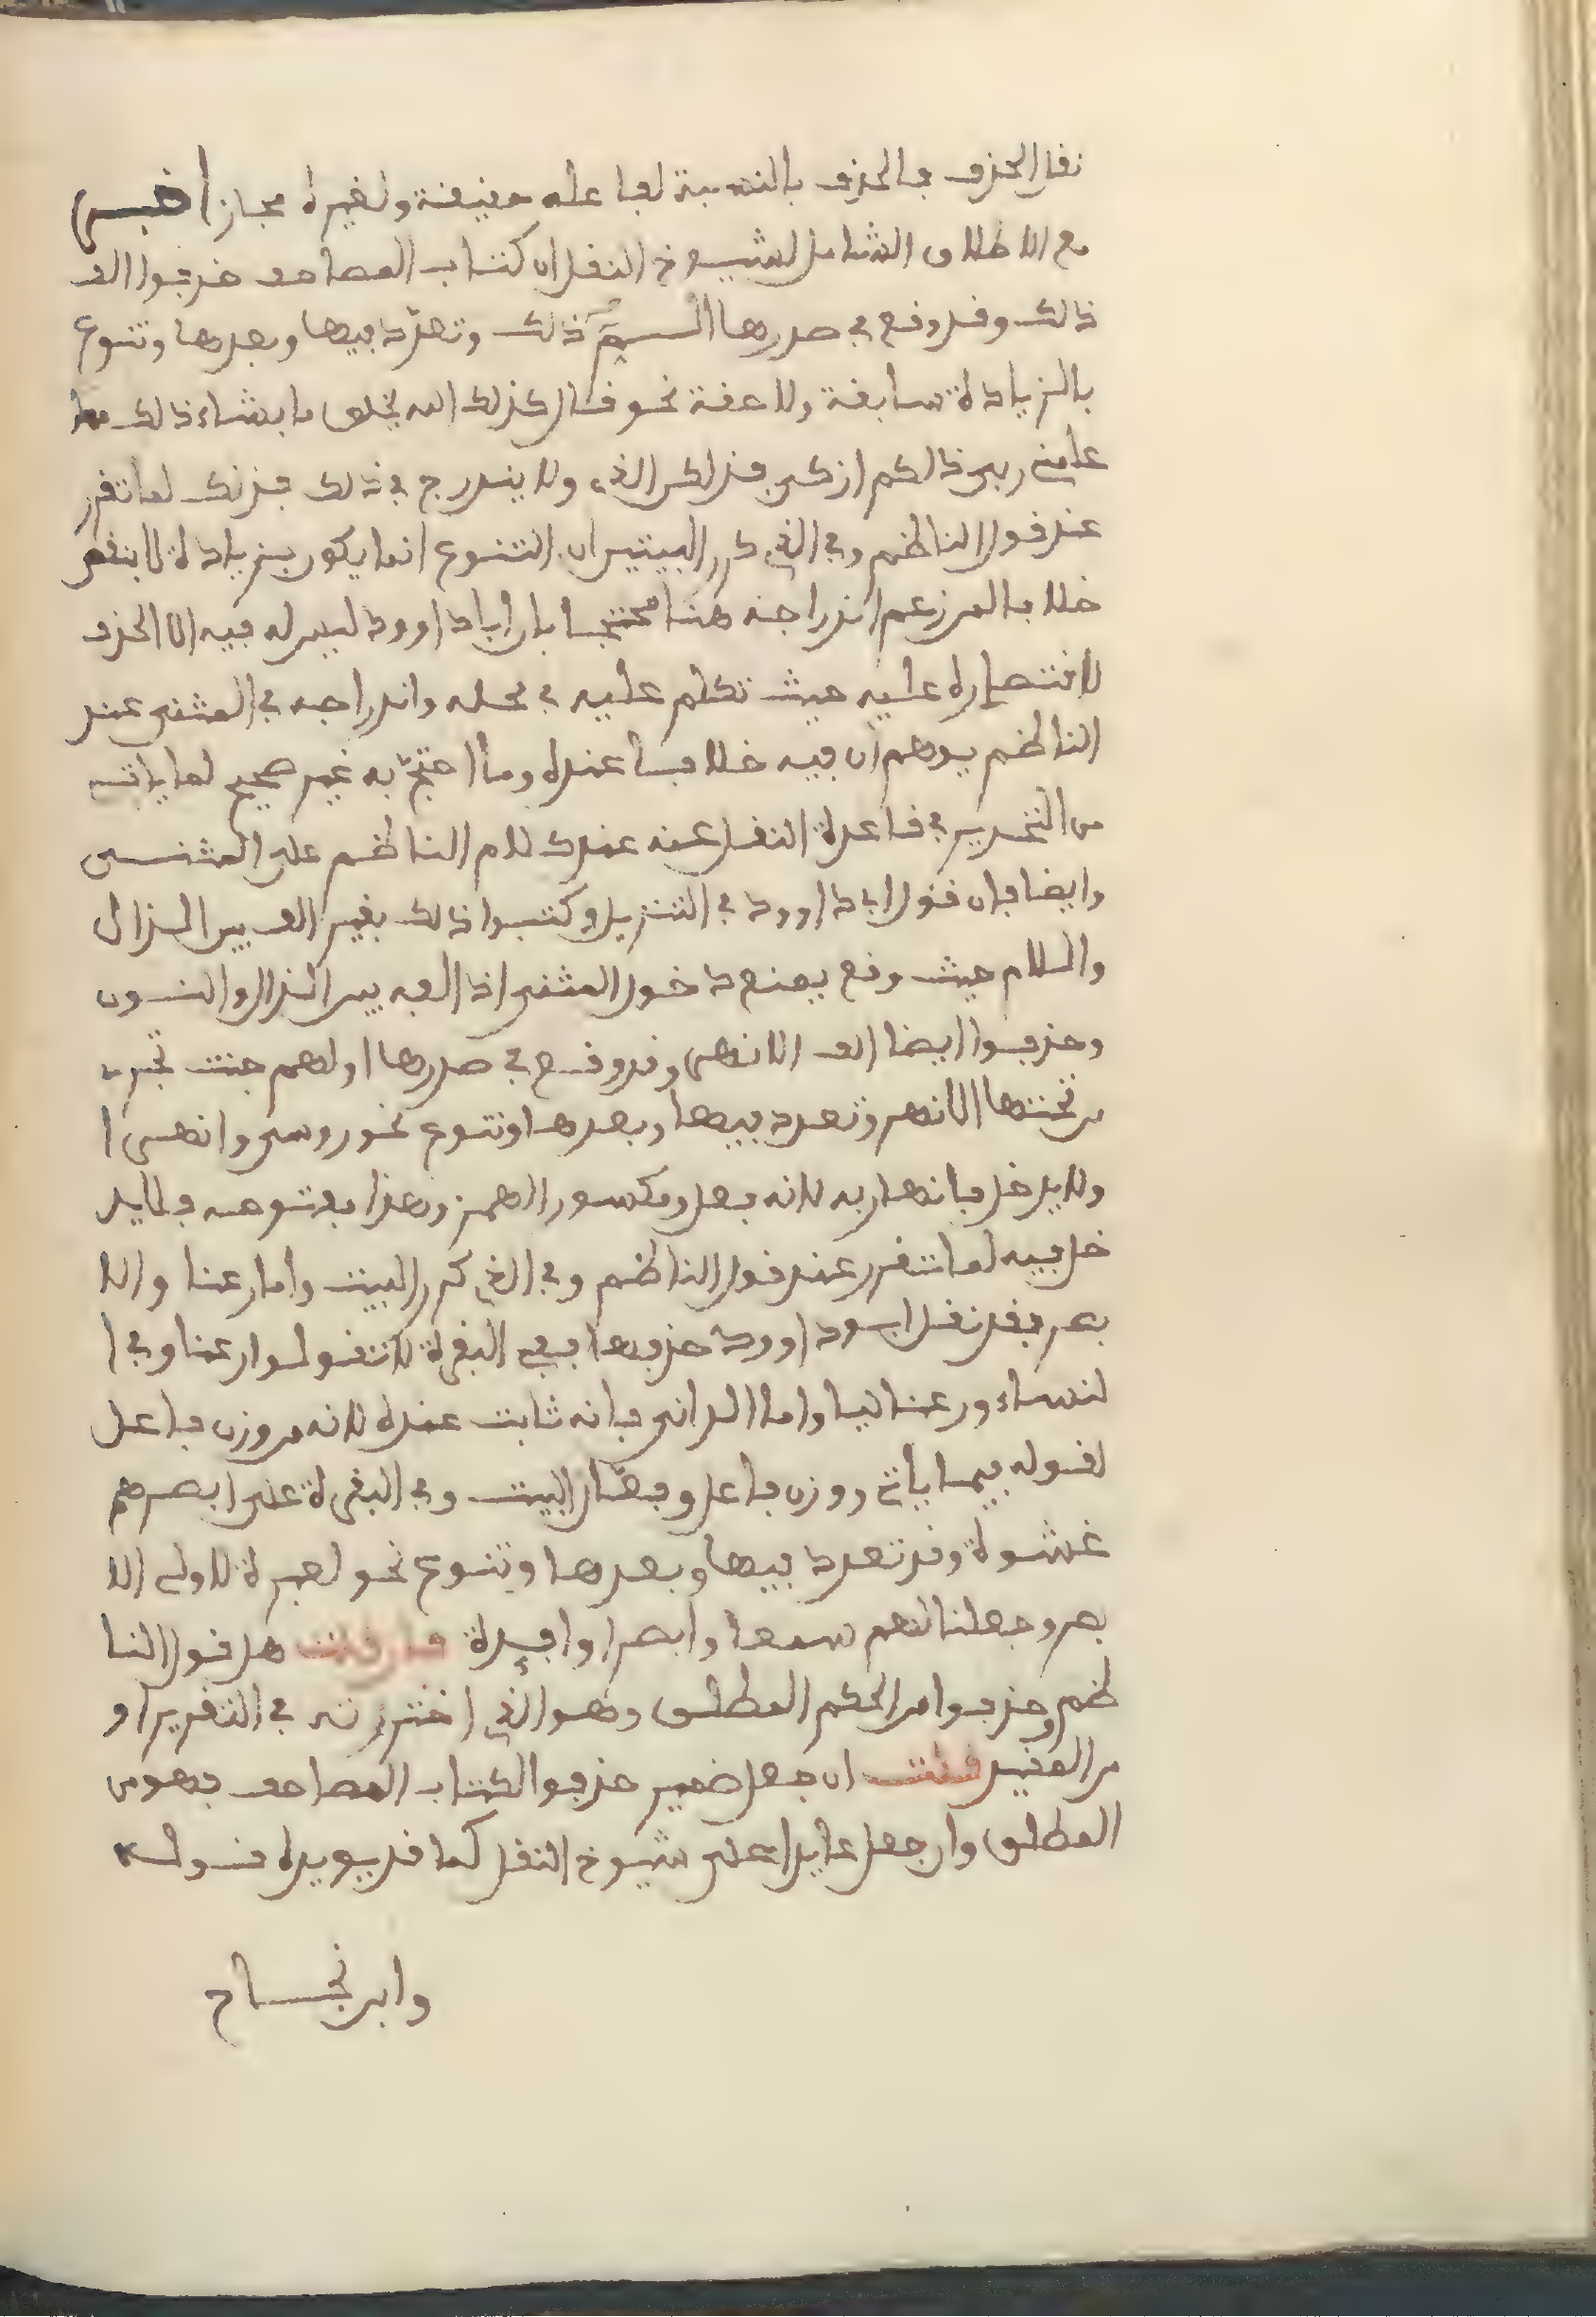 نقل الحذف فالحذف بالنسبة لفاعله حقيقة ولغيره مجاز اخبر
مع الاطلاق الشامل لشيوخ النقل ان كتاب المصاحف حذفوا الف
ذلك وقد وقع في صدرها الم ذلك وتعدد فيها وبعدها وتنوع
بالزيادة سابقة ولاحقة نحو قال كذلك الله يخلق ما يشاء ذلك مما
علمني ربي ذلكم ازكى فذلكن الذي ولا يندرج في ذلك فذنك لما تقرر
عند قول الناظم وفي الذي كرر البيتين ان التنوع انما يكون بزيادة لا بنقص
خلافا لمن زعم اندراجه هنا محتجا بان ابا داوود ليس له فيه الا الحذف
لاقتصاره عليه حيث تكلم عليه في محله واندراجه في المثنى عند
الناظم يوهم ان فيه خلافا عنده وما احتج به غير صحيح لما ياتي
من التحرير في قاعدة النقل عنه عند كلام الناظم على المثنى
وايضا فان قول ابي داوود في التنزيل وكتبوا ذلك بغير الف بين الذال
واللام حيث وقع يمنع دخول المثنى اذ الفه بين الذال والنون
وحذفوا ايضا الف الانهر وقد وقع في صدرها اولهم جنت تجري
من تحتها الانهر وتعدد فيها وبعدها وتنوع نحو روسي وانهرا
ولا يدخل فانهار به لانه فعل ومكسور الهمز وهذا مفتوحه فلا يد
خل فيه لما تقرر عند قول الناظم وفي الذي كرر البيت واما رعنا والا
بصر فقد نقل ابو داوود حذفها ففي البقرة لا تقولوا رعنا وفي ا
لنساء ورعنا ليا واما الداني فانه ثابت عنده لانه من وزن فاعل
لقوله فيما ياتي ووزن فاعل وفعال البيت وفي البقرة على ابصرهم
غشوة وقد تعدد فيها وبعدها وتنوع نحو لعبرة لاولي الا
بصر وجعلنا لهم سمعا وابصرا وافيدة فان قلت هل قول النا
ظم وحذفوا من الحكم المطلق وهو الذي اخترته في التقرير او
من المقيد قلت ان جعل ضمير حذفوا لكتاب المصاحف فهو من
المطلق وان جعل عايدا على شيوخ النقل كما قد يويده قوله
وابن نجاح